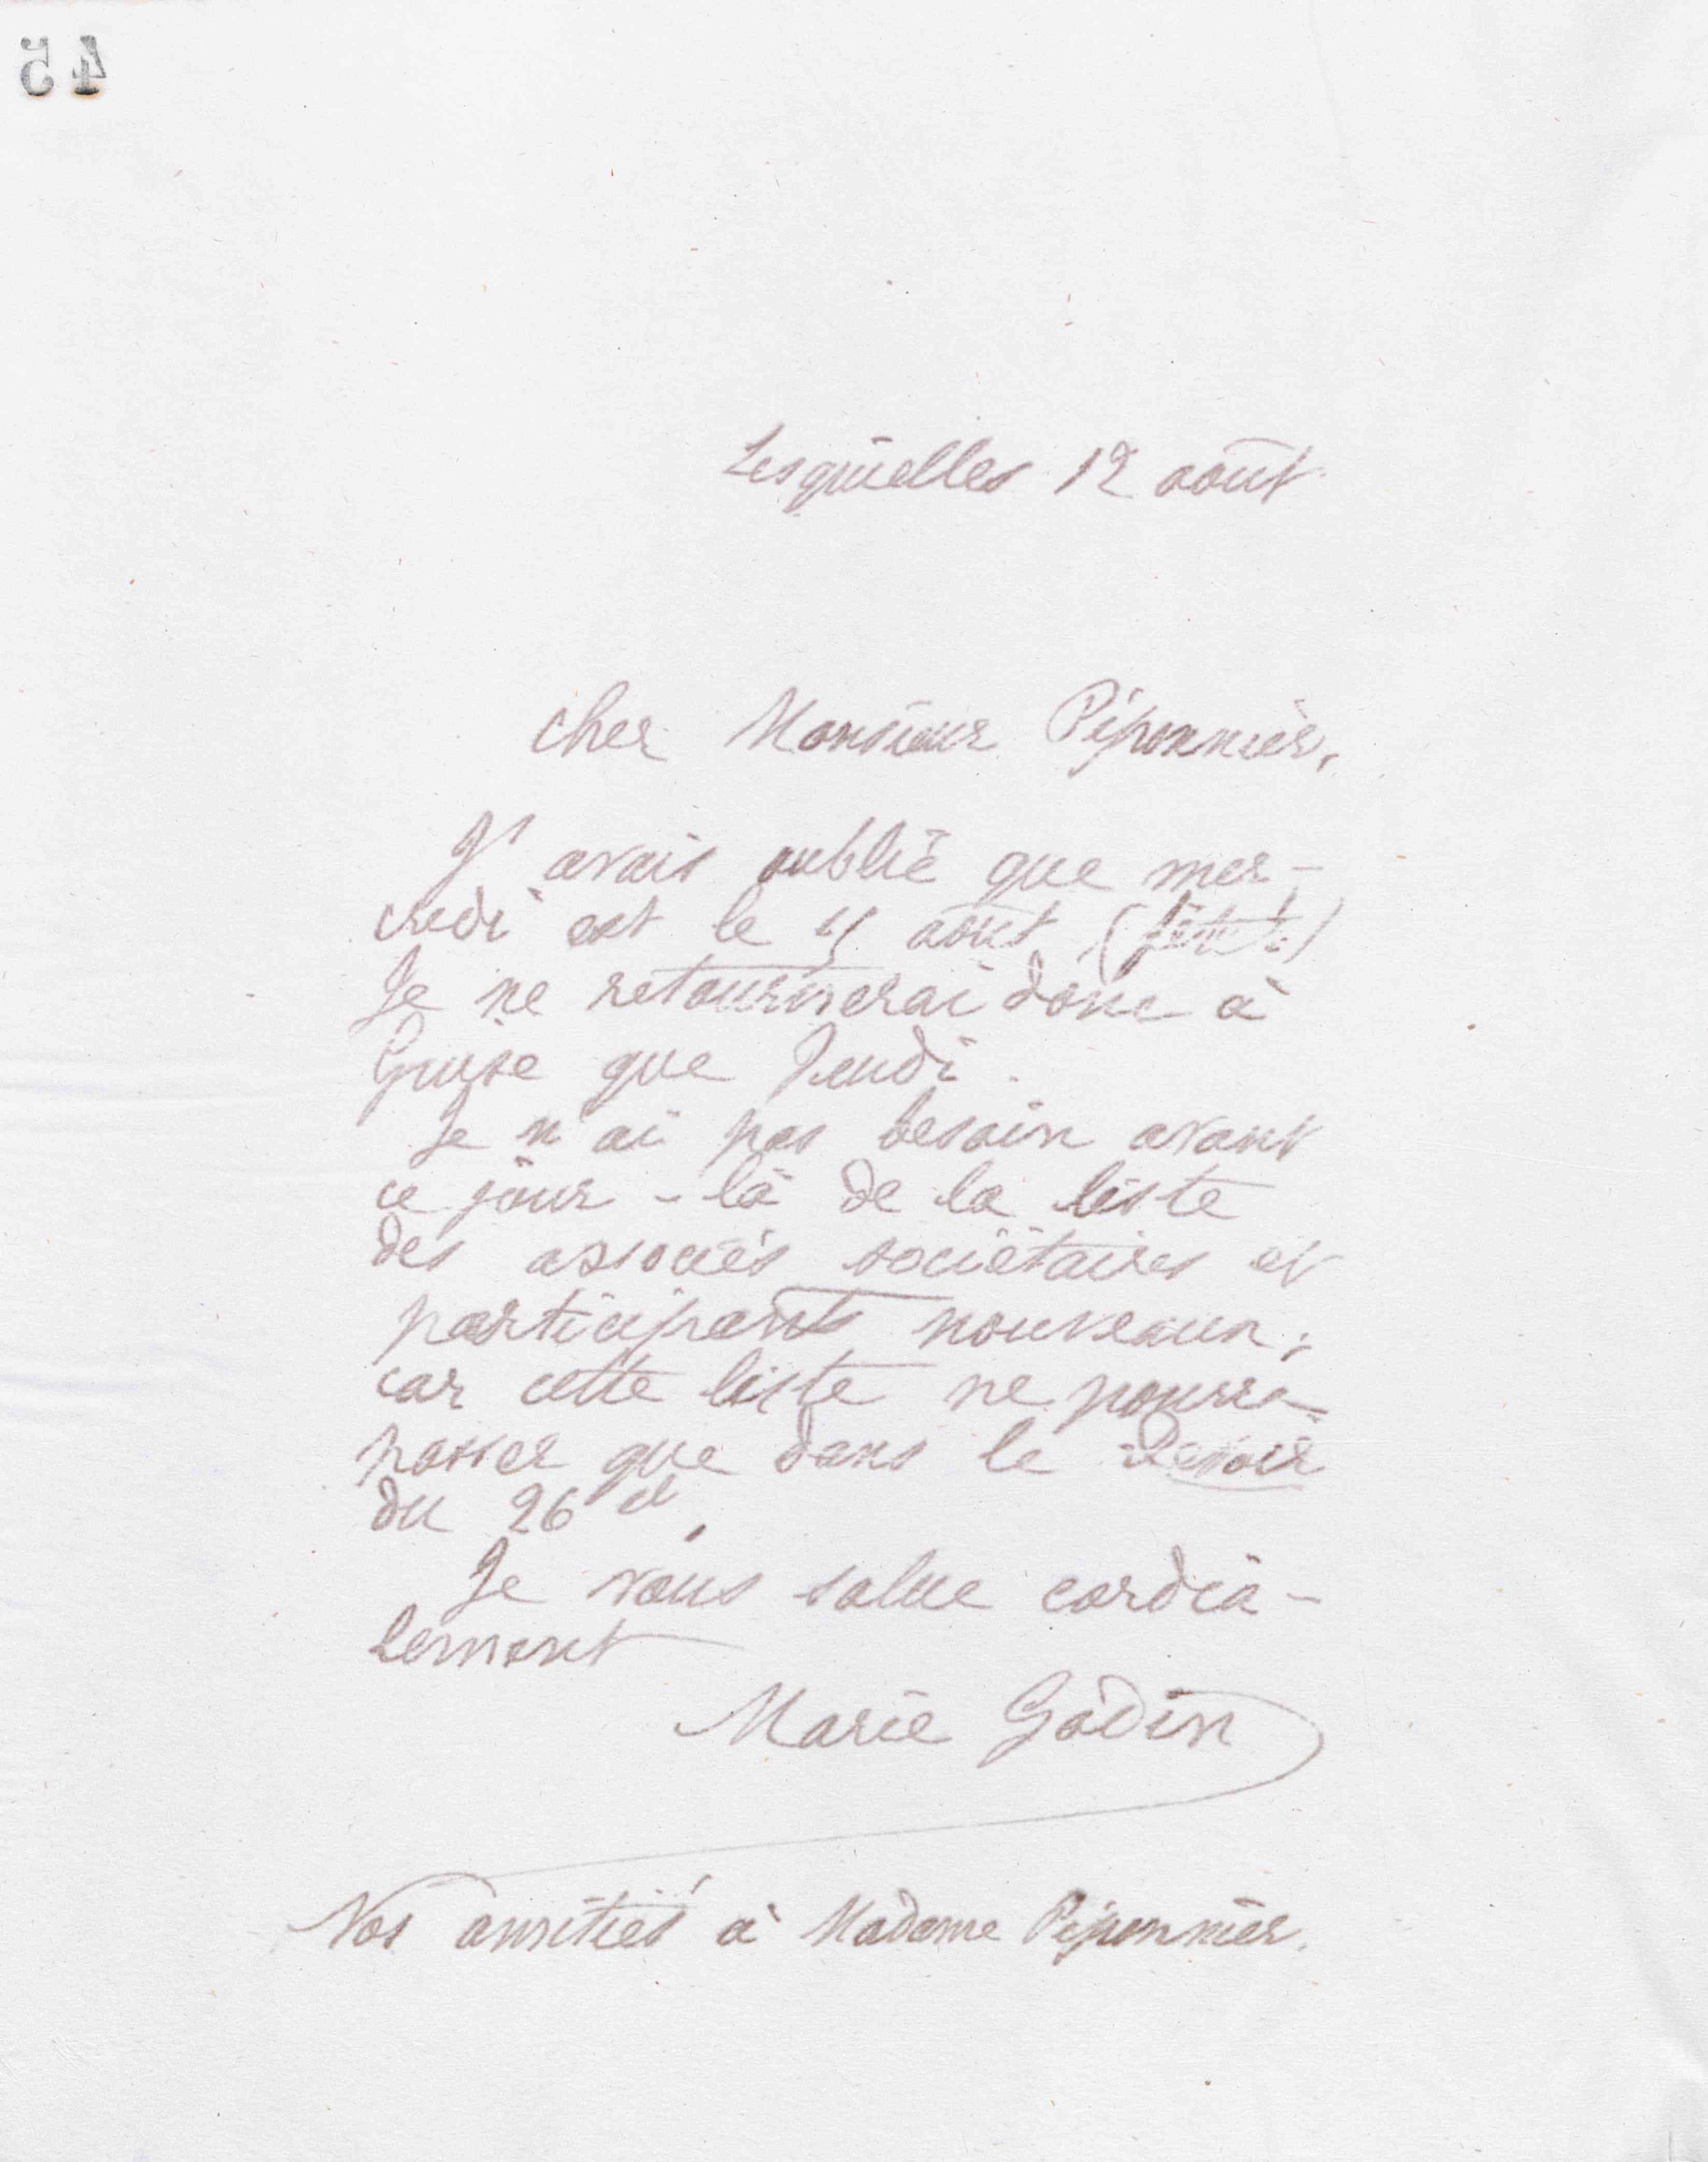 45
Lesquielles 12 août
Cher Monsieur Piponnier,
J'avais oublié que mer-
credi est le 15 août (fête)
Je ne retournerai donc à
Guise que Jeudi.
Je n'ai pas besoin avant
ce jour-là de la liste
des associés sociétaires et
participants nouveaux,
car cette liste ne pourra
passer que dans le Devoir
du 26 ct.
Je vous salue cordia-
lement
Marie Godin
Nos amitiés à Madame Piponnier.